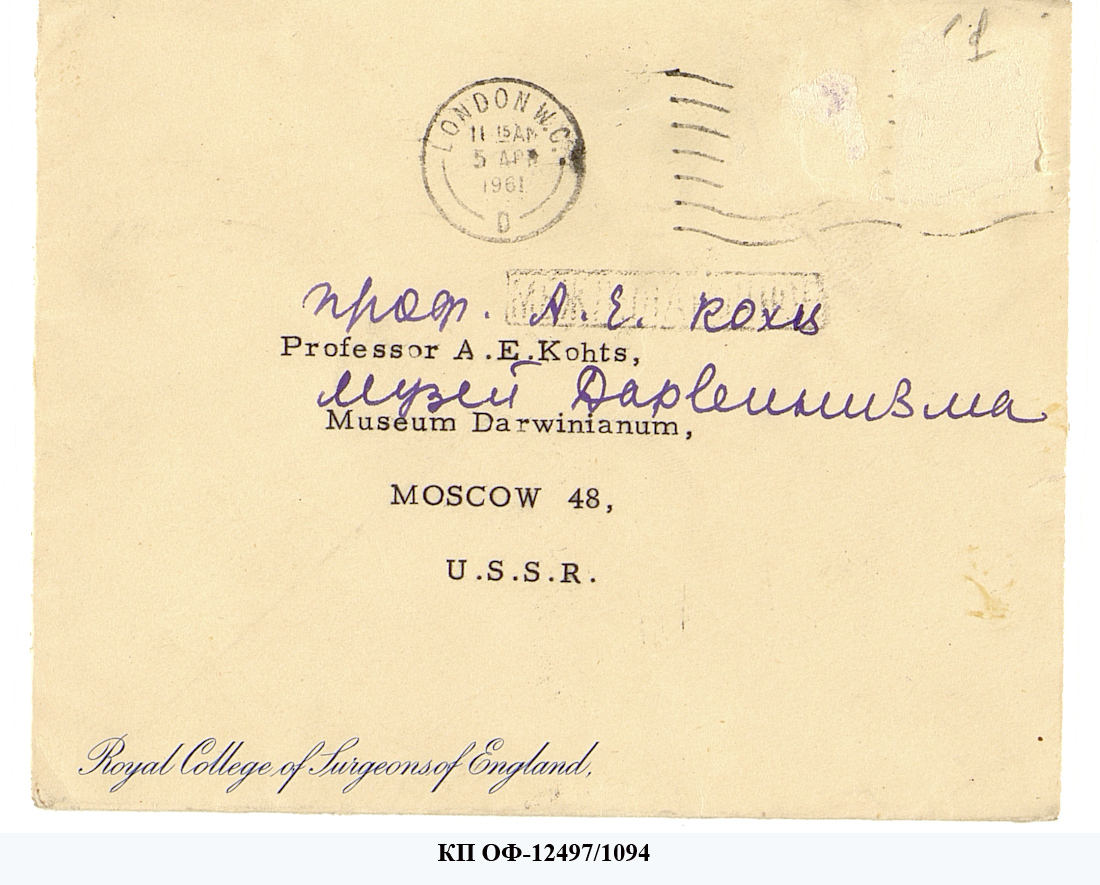 LONDON W.C.
11 15 AM
5 APR
1961
D
проф. А. Е. Кохц
Professor A.E.Kohts,
музей Дарвинизма
Museum Darwinianum,
MOSCOW 48,
U.S.S.R.
Royal College of Surgeons of England.
КП ОФ-12497/1094